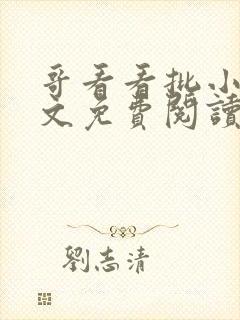 哥看看批小
文免費閱讀
劉志清